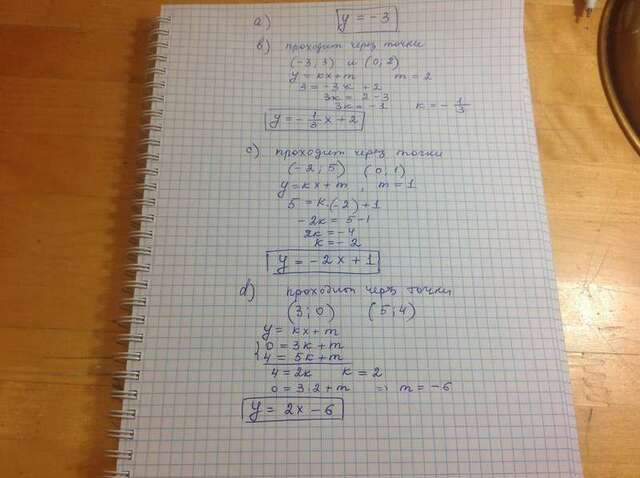 a) y = -3
b) проходит через точки
(-3; 3) и (0; 2)
y = kx+m m = 2
3 = -3k + 2
3k = 2-3
3k = -1 k = -1/3
y = -1/3 x + 2
c) проходит через точки
(-2; 5) (0; 1)
y = kx+m, m = 1
5 = k·(-2)+1
-2k = 5-1
2k = -4
k = -2
y = -2x + 1
d) проходит через точки
(3; 0) (5; 4)
y = kx+m
0 = 3k+m
4 = 5k+m
4 = 2k k = 2
0 = 3·2+m => m = -6
y = 2x - 6